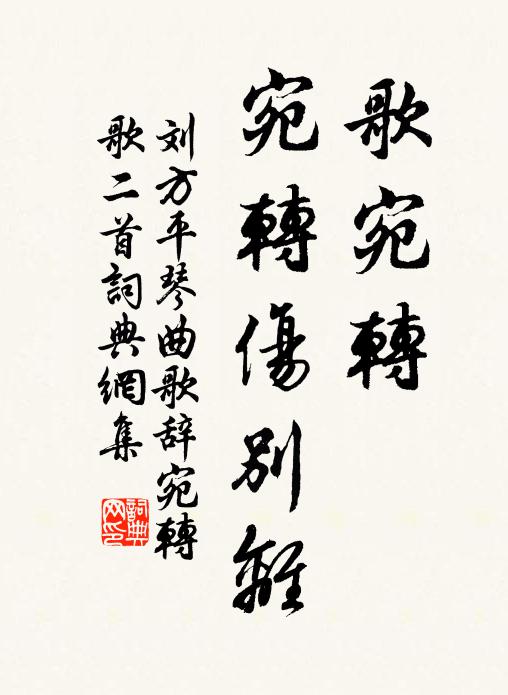 歌宛轉
宛轉傷別離
刘方平琴曲歌辞宛轉
歌二首詞典網集
詞典网印